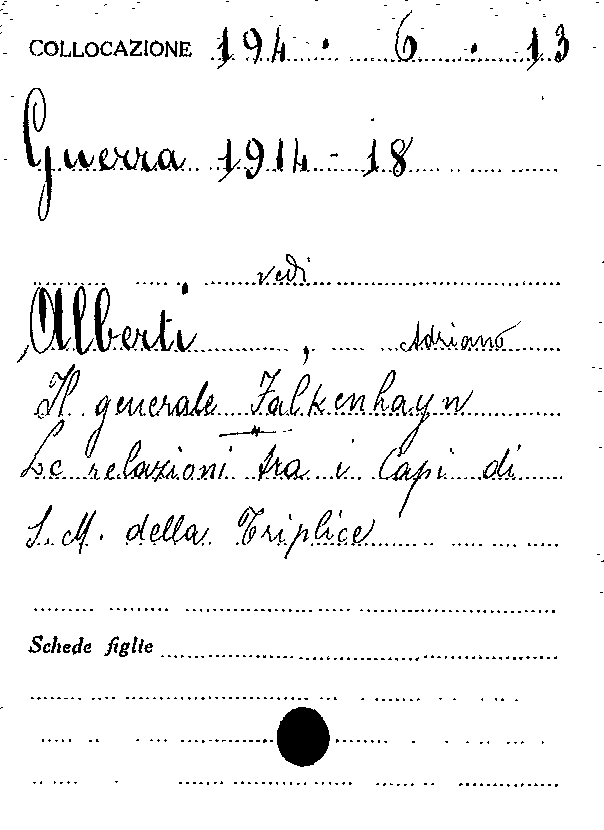 COLLOCAZIONE 194. 6. 13
Guerra 1914-18
vedi
Alberti, Adriano
Il generale Falkenhayn
Le relazioni tra i Capi di
S.M. della Triplice
Schede figlie